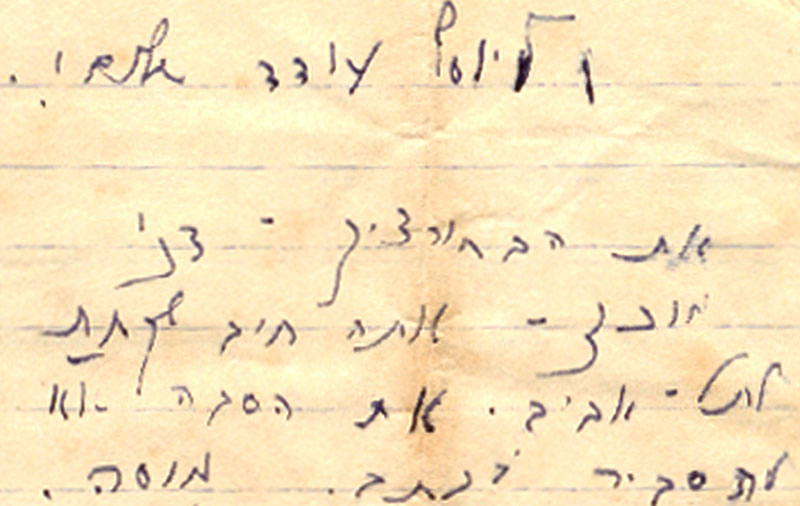 ליוסף עודד שלום!
את הבחורציק - דני
- אתה חיב לקחת
לתל-אביב. את הסבה לא
להסביר בכתב. מוסה.